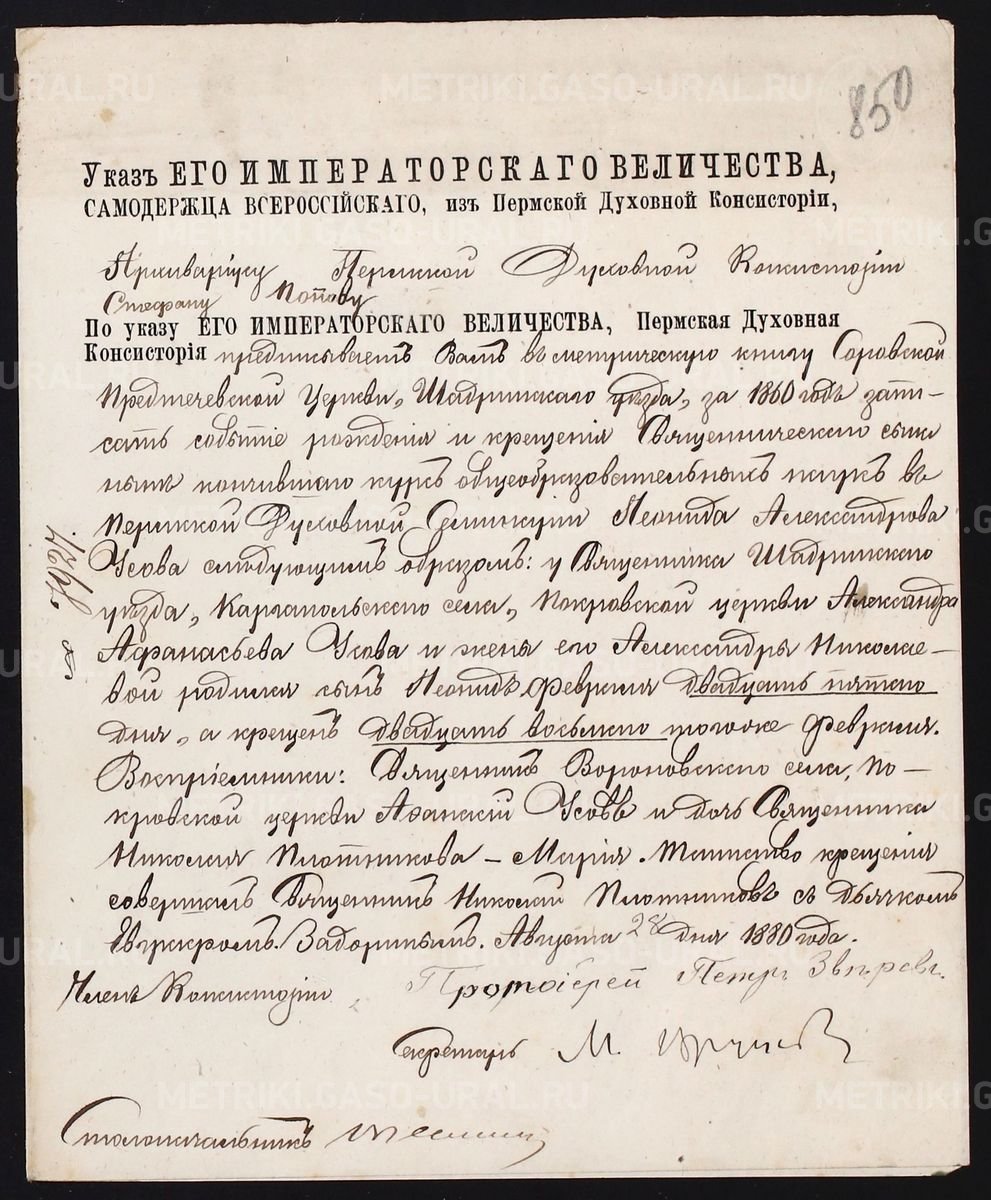 850
Указъ ЕГО ИМПЕРАТОРСКАГО ВЕЛИЧЕСТВА,
САМОДЕРЖЦА ВСЕРОССІЙСКАГО, изъ Пермской Духовной Консисторіи,
Архиваріусу Пермской Духовной Консисторіи
Стефану Попову
По указу ЕГО ИМПЕРАТОРСКАГО ВЕЛИЧЕСТВА, Пермская Духовная
Консисторія предписываетъ Вамъ въ метрическую книгу Соровской
Предтечевской Церкви, Шадринскаго уѣзда, за 1860 годъ запи-
сать событіе рожденія и крещенія Священническаго сына
нынѣ кончившаго курсъ общеобразовательныхъ наукъ въ
Пермской Духовной Семинаріи Леонида Александрова
Усова слѣдующимъ образомъ: у Священника Шадринскаго
уѣзда, Каргапольскаго села, Покровской церкви Александра
Афанасьева Усова и жены его Александры Николае-
вой родился сынъ Леонидъ Февраля двадцать пятаго
дня, а крещенъ двадцать восьмаго тогоже Февраля.
Воспріемники: Священникъ Вороновскаго села, По-
кровской церкви Афанасій Усовъ и дочь Священника
Николая Плотникова – Марія. Таинство крещенія
совершалъ Священникъ Николай Плотниковъ съ дьячкомъ
Евграфомъ Задоринымъ. Августа 28 дня 1880 года.
Членъ Консисторіи, Протоіерей Петръ Звѣревъ.
Секретарь М.
Столоначальникъ
METRIKI.GASO-URAL.RU